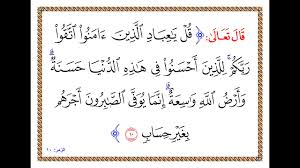 قَالَ تَعَالَىٰ: ﴿ قُلْ يَٰعِبَادِ ٱلَّذِينَ ءَامَنُوا۟ ٱتَّقُوا۟
رَبَّكُمْ ۚ لِلَّذِينَ أَحْسَنُوا۟ فِى هَٰذِهِ ٱلدُّنْيَا حَسَنَةٌ ۗ
وَأَرْضُ ٱللَّهِ وَٰسِعَةٌ ۗ إِنَّمَا يُوَفَّى ٱلصَّٰبِرُونَ أَجْرَهُم
بِغَيْرِ حِسَابٍ ١٠ ﴾
الزمر: ١٠